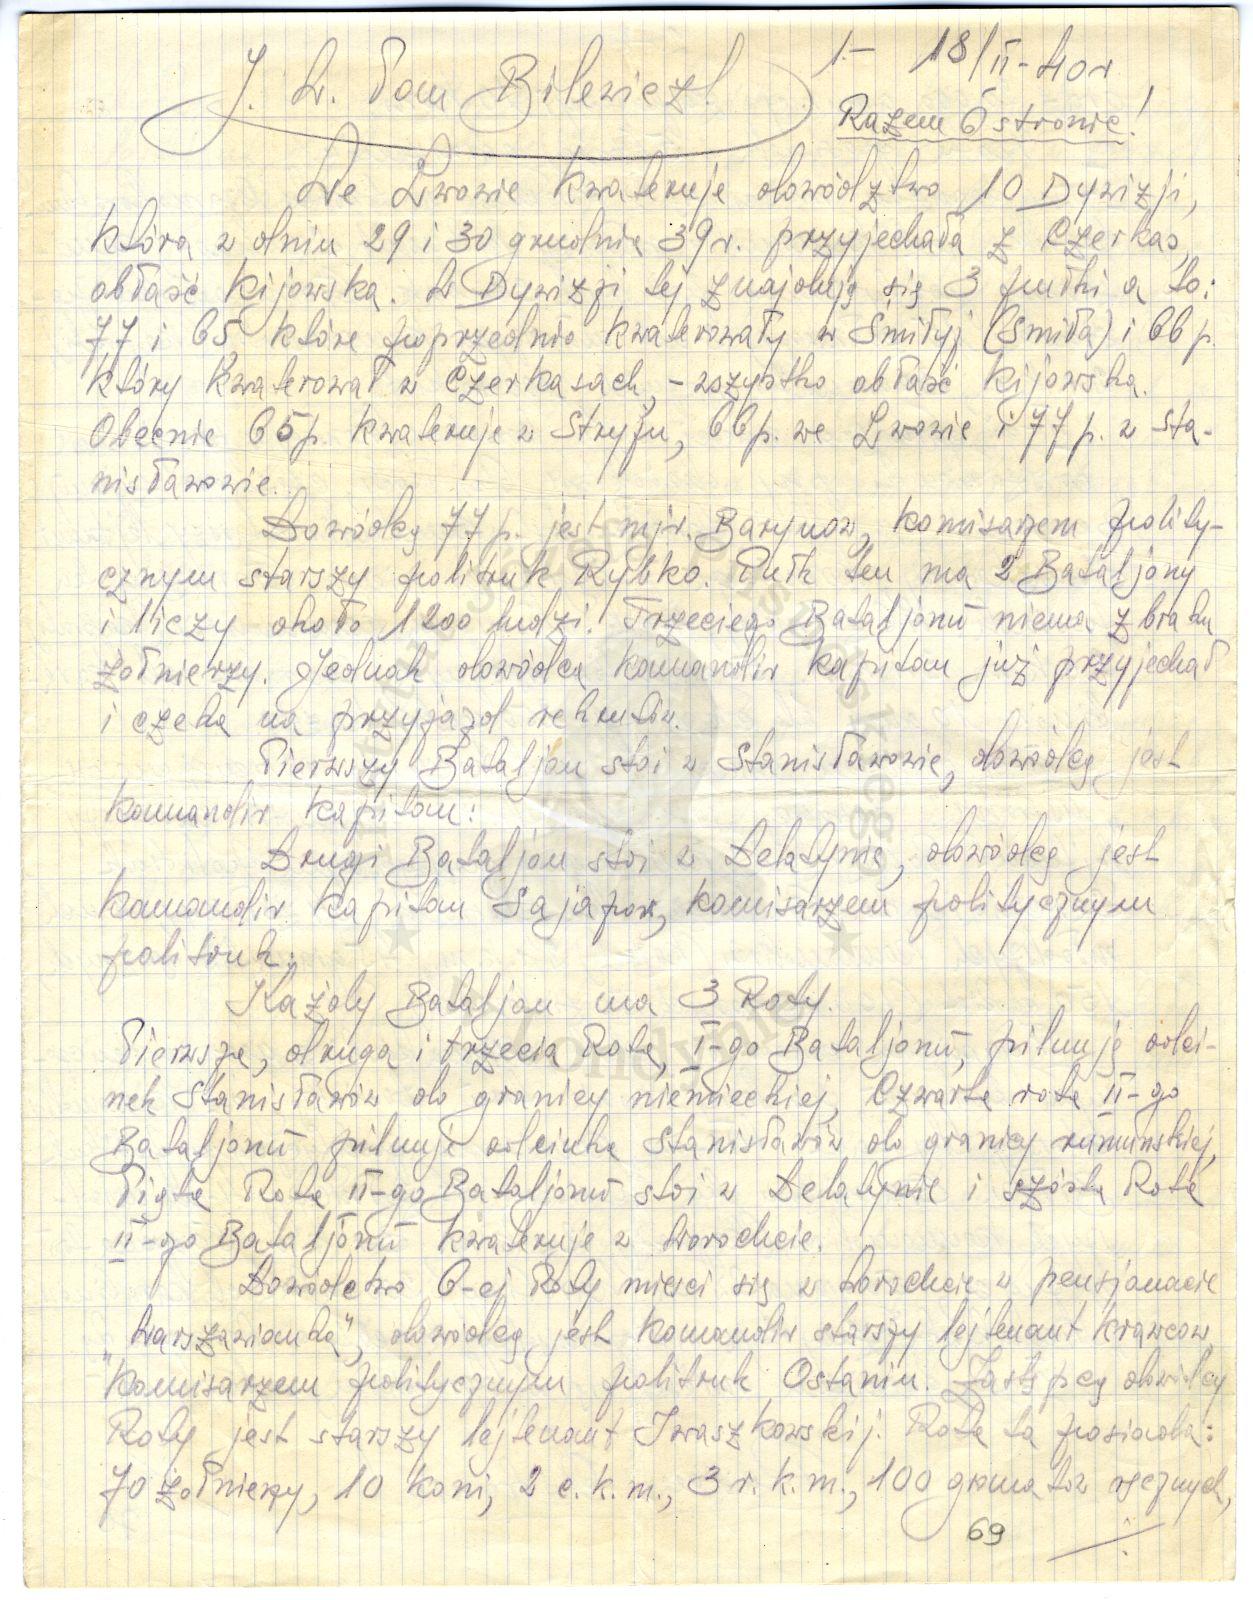 1.- 18/II-40r
J. W. Pan Bilewicz!
Razem 6 stronic!
We Lwowie kwateruje dowództwo 10 Dywizji,
która w dniu 29 i 30 grudnia 39r. przyjechała z Czerkas,
obłaść Kijowska. W Dywizji tej znajdują się 3 pułki a to:
77 i 65 które poprzednio kwaterowały w Smiłyj (Smiła) i 66 p.
który kwaterował w Czerkasach, - wszystko obłaść Kijowska.
Obecnie 65 p. kwateruje w Stryju, 66 p. we Lwowie i 77 p. w Sta-
nisławowie.
Dowódcą 77 p. jest mjr. Barynow, komisarzem polity-
cznym starszy politruk Rybko. Pułk ten ma 2 Bataljony
i liczy około 1200 ludzi. Trzeciego Bataljonu niema z braku
żołnierzy. Jednak dowódca komandir kapitan już przyjechał
i czeka na przyjazd rekrutów.
Pierwszy Bataljon stoi w Stanisławowie, dowódcą jest
komandir kapitan:
Drugi Bataljon stoi w Delatynie, dowódcą jest
komandir kapitan Sająpow, komisarzem politycznym
politruk:
Każdy Bataljon ma 3 Roty.
Pierwsza, druga i trzecia Rota, I-go Bataljonu, pilnuje odci-
nek Stanisławów do granicy niemieckiej, Czwarta rota II-go
Bataljonu pilnuje odcinka Stanisławów do granicy rumunskiej,
Piąta Rota II-go Bataljonu stoi w Delatynie i szósta Rota
II-go Bataljonu kwateruje w Worochcie.
Dowództwo 6-ej Roty mieści się w Worochcie w pensjonacie
"Warszawianka", dowódcą jest komandir starszy lejtenant Krawcow
komisarzem politycznym politruk Ostanin. Zastępcą dowódcy
Roty jest starszy lejtenant Iwaszkowskij. Rota ta posiada:
70 żołnierzy, 10 koni, 2 c.k.m., 3 r.k.m., 100 granatów ręcznych,
69